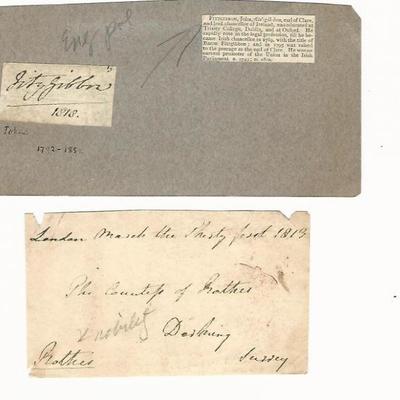 Eng pol
FITZGIBBON, John, fitz'gib'bon, earl of Clare,
and lord chancellor of Ireland, was educated at
Trinity College, Dublin, and at Oxford. He
rapidly rose in the legal profession, till he be-
came Irish chancellor in 1789, with the title of
Baron Fitzgibbon; and in 1795 was raised
to the peerage as the earl of Clare. He was an
earnest promoter of the Union in the Irish
Parliament.
FitzGibbon
1818.
John
1792-185
London March the Thirty first 1813
The Countess of Rothes
& nobility
Dorking
Rothes
Surrey